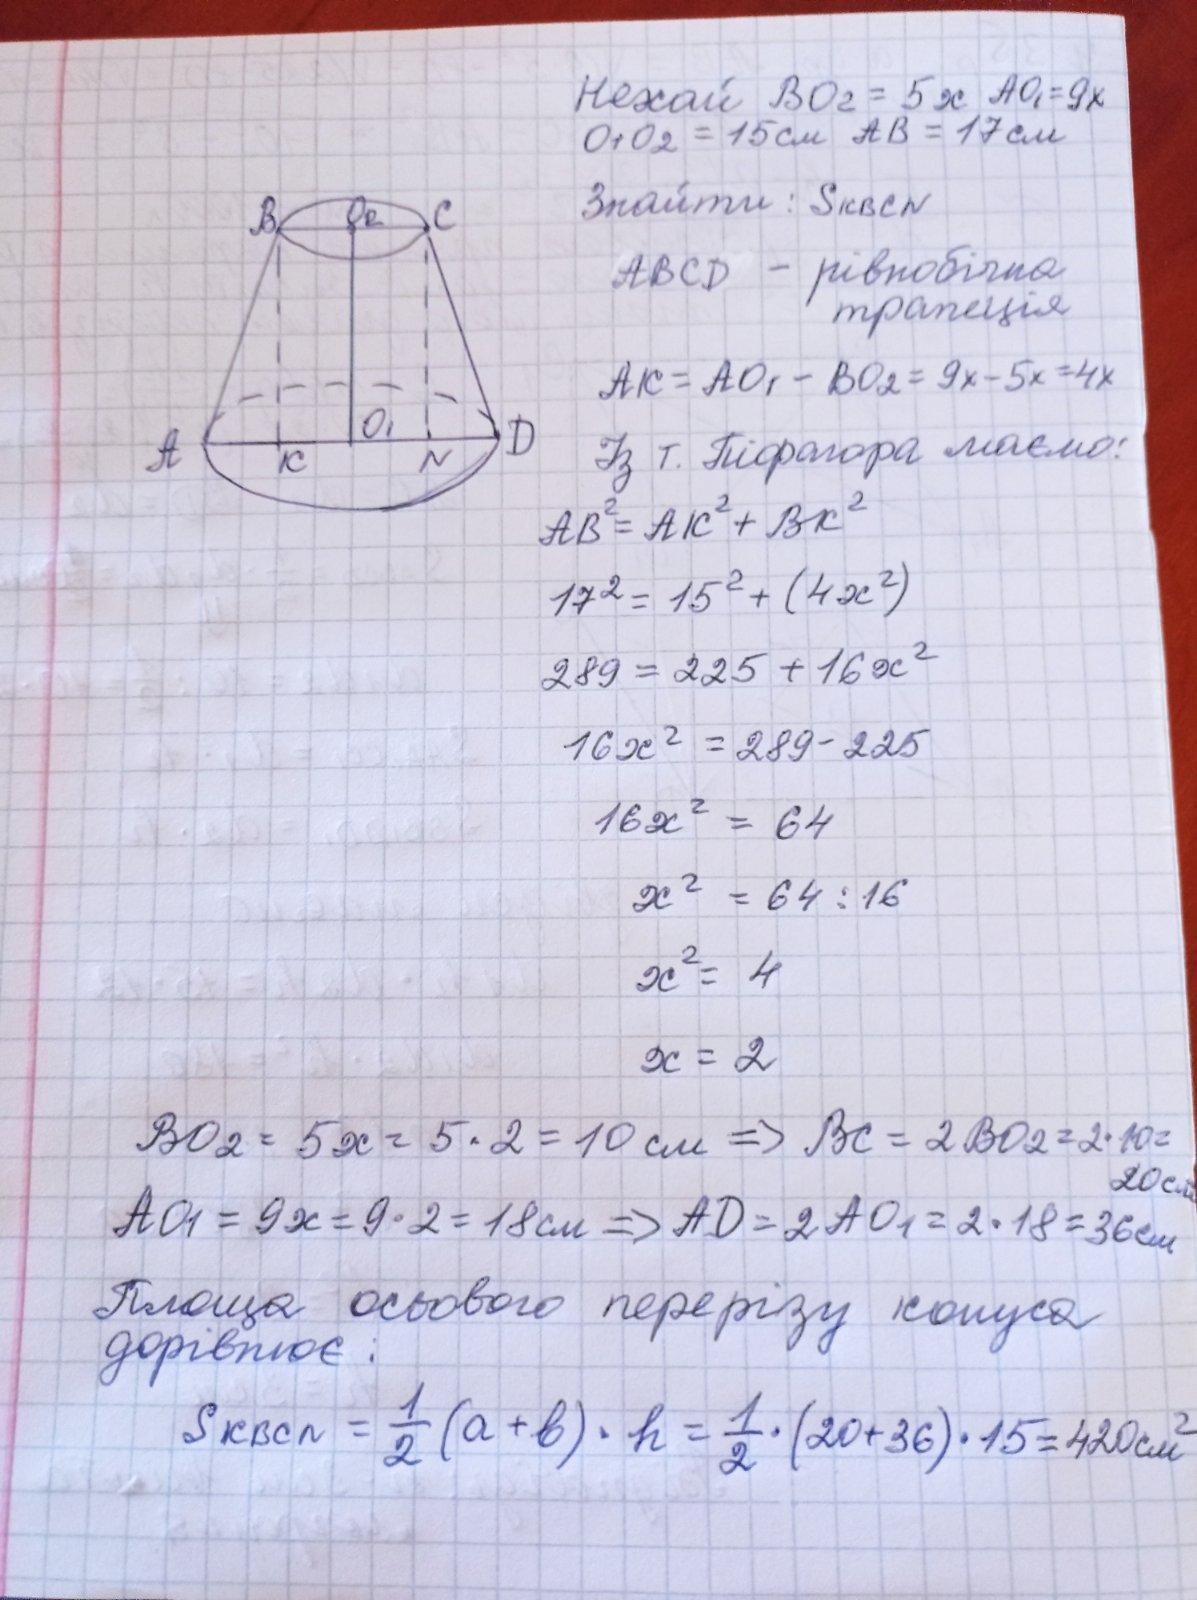 Нехай BO2 = 5x AO1 = 9x
O1O2 = 15см AB = 17см
Знайти: SKBCN
B O2 C
ABCD - рівнобічна
трапеція
AK = AO1 - BO2 = 9x - 5x = 4x
A K O1 N D
Із т. Піфагора маємо:
AB² = AK² + BK²
17² = 15² + (4x²)
289 = 225 + 16x²
16x² = 289 - 225
16x² = 64
x² = 64 : 16
x² = 4
x = 2
BO2 = 5x = 5·2 = 10 см => BC = 2BO2 = 2·10 =
20см
AO1 = 9x = 9·2 = 18см => AD = 2AO1 = 2·18 = 36см
Площа осьового перерізу конуса
дорівнює:
SKBCN = 1/2 (a + b) · h = 1/2 · (20+36) · 15 = 420см²